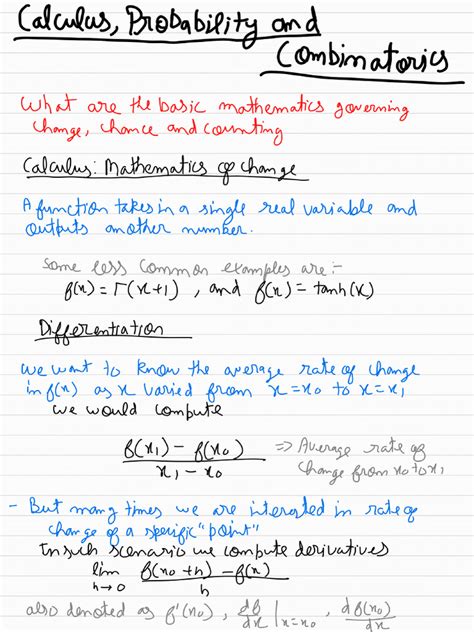 Calculus, Probability and
Combinatorics
What are the basic mathematics governing
change, chance and counting
Calculus: Mathematics of change
A function takes in a single real variable and
outputs another number.
Some less common examples are :-
f(x) = Γ(x+1) , and f(x) = tanh(x)
Differentiation
We want to know the average rate of change
in f(x) as x varied from x=x₀ to x=x₁
we would compute
f(x₁) - f(x₀) / x₁ - x₀ ⇒ Average rate of
change from x₀ to x₁
- But many times we are intersted in rate of
change of a specific "point"
In such scenario we compute derivatives
lim h→0 f(x₀+h) - f(x) / h
also denoted as f'(x₀) , df/dx | x=x₀ , df(x₀)/dx